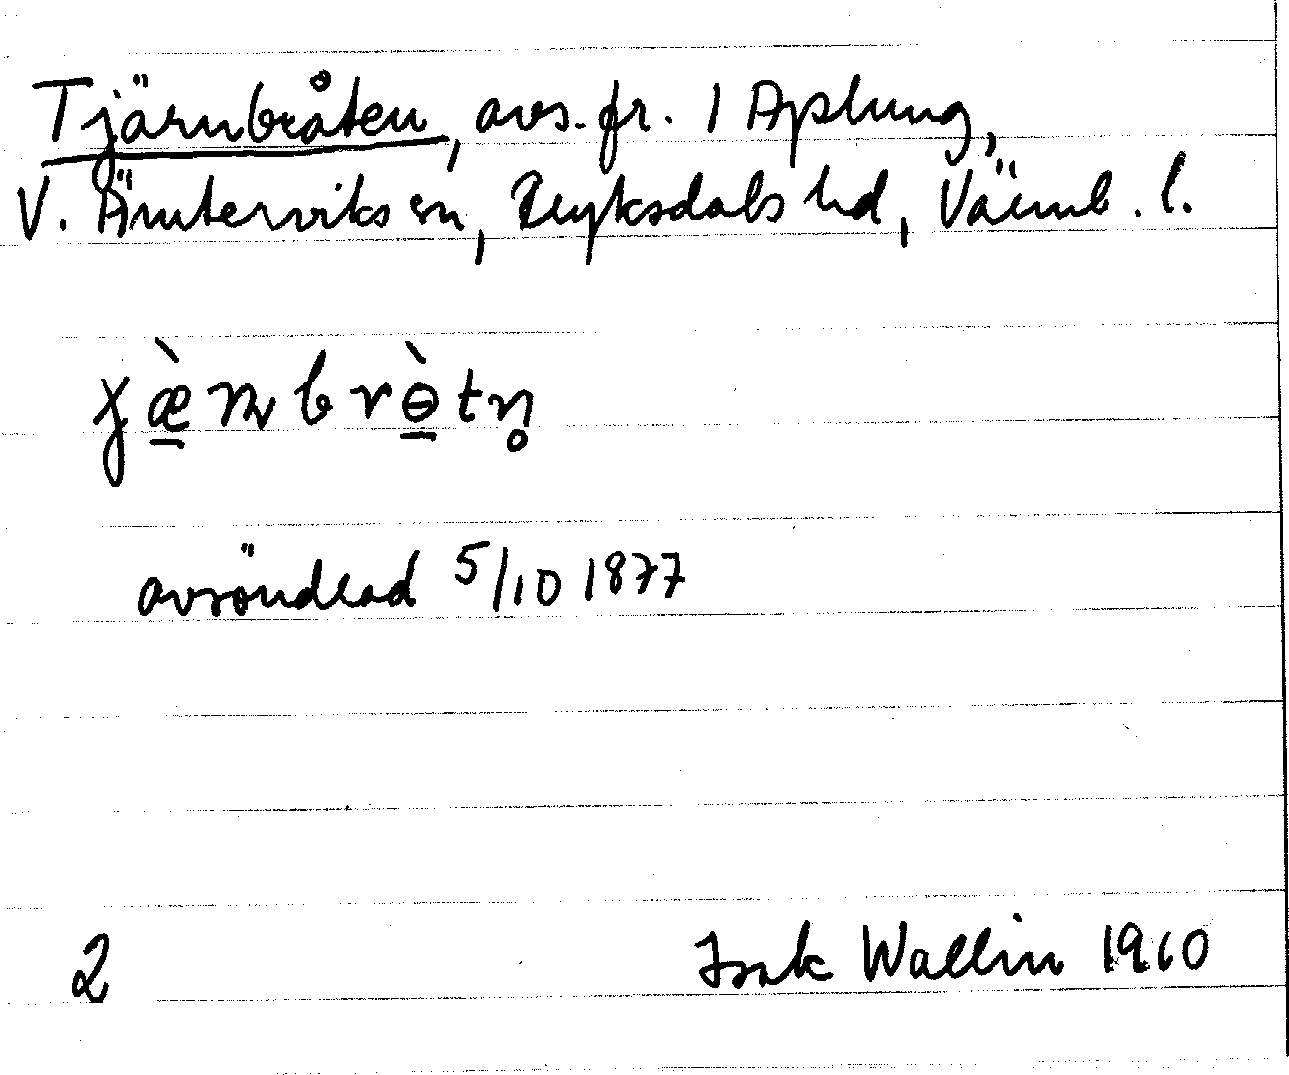 Tjärnbråten, avs. fr. 1 Aplung,
V. Ämterviks sn, Fryksdals hd, Värml. l.
avsöndrad 5/10 1877
2 Isak Wallin 1960